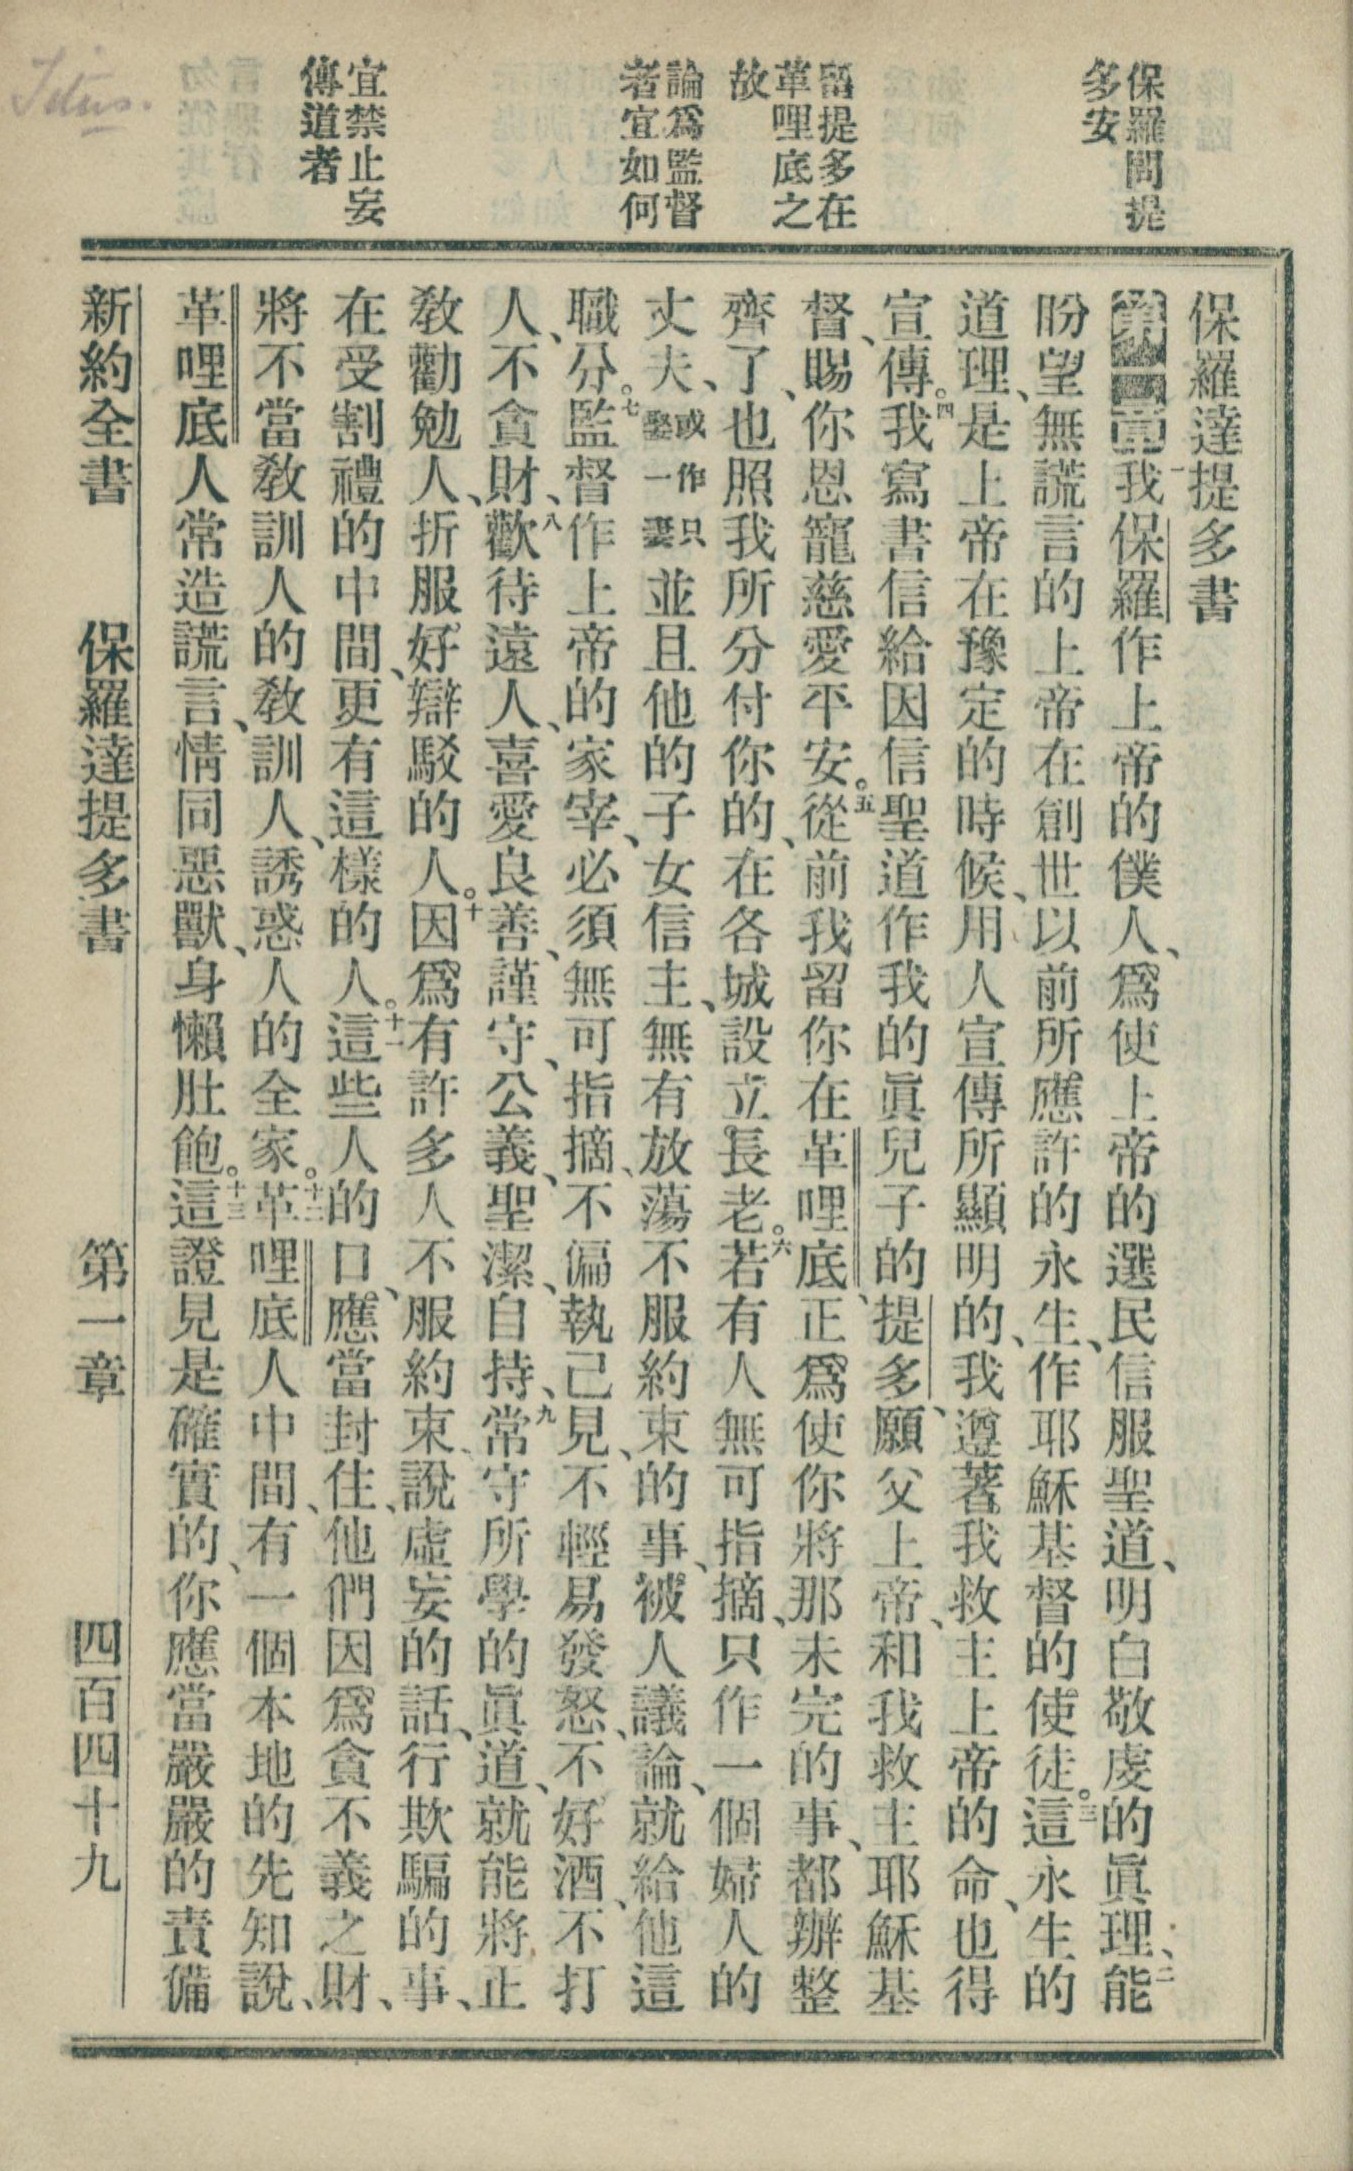 Titus.
保羅問提
多安
留提多在
革哩底之
故
論爲監督
者宜如何
宜禁止妄
傳道者
保羅達提多書
第一章一我保羅作上帝的僕人、爲使上帝的選民信服聖道、明白敬虔的眞理、二能
盼望無謊言的上帝在創世以前所應許的永生、作耶穌基督的使徒。三這永生的
道理、是上帝在豫定的時候、用人宣傳所顯明的、我遵著我救主上帝的命、也得
宣傳。四我寫書信給因信聖道作我的眞兒子的提多、願父上帝、和我救主耶穌基
督、賜你恩寵慈愛平安。五從前我留你在革哩底、正爲使你將那未完的事、都辦整
齊了、也照我所分付你的、在各城設立長老。六若有人無可指摘、只作一個婦人的
丈夫、或作只娶一妻並且他的子女信主、無有放蕩不服約束的事、被人議論、就給他這
職分。七監督作上帝的家宰、必須無可指摘、不偏執己見、不輕易發怒、不好酒、不打
人、不貪財、八歡待遠人、喜愛良善、謹守、公義、聖潔、自持、九常守所學的眞道、就能將正
教勸勉人、折服好辯駁的人。十因爲有許多人不服約束、說虛妄的話、行欺騙的事、
在受割禮的中間、更有這樣的人。十一這些人的口、應當封住、他們因爲貪不義之財、
將不當教訓人的教訓人、誘惑人的全家。十二革哩底人中間、有一個本地的先知說、
革哩底人常造謊言、情同惡獸、身懶肚飽。十三這證見是確實的、你應當嚴嚴的責備
新約全書 保羅達提多書 第一章 四百四十九